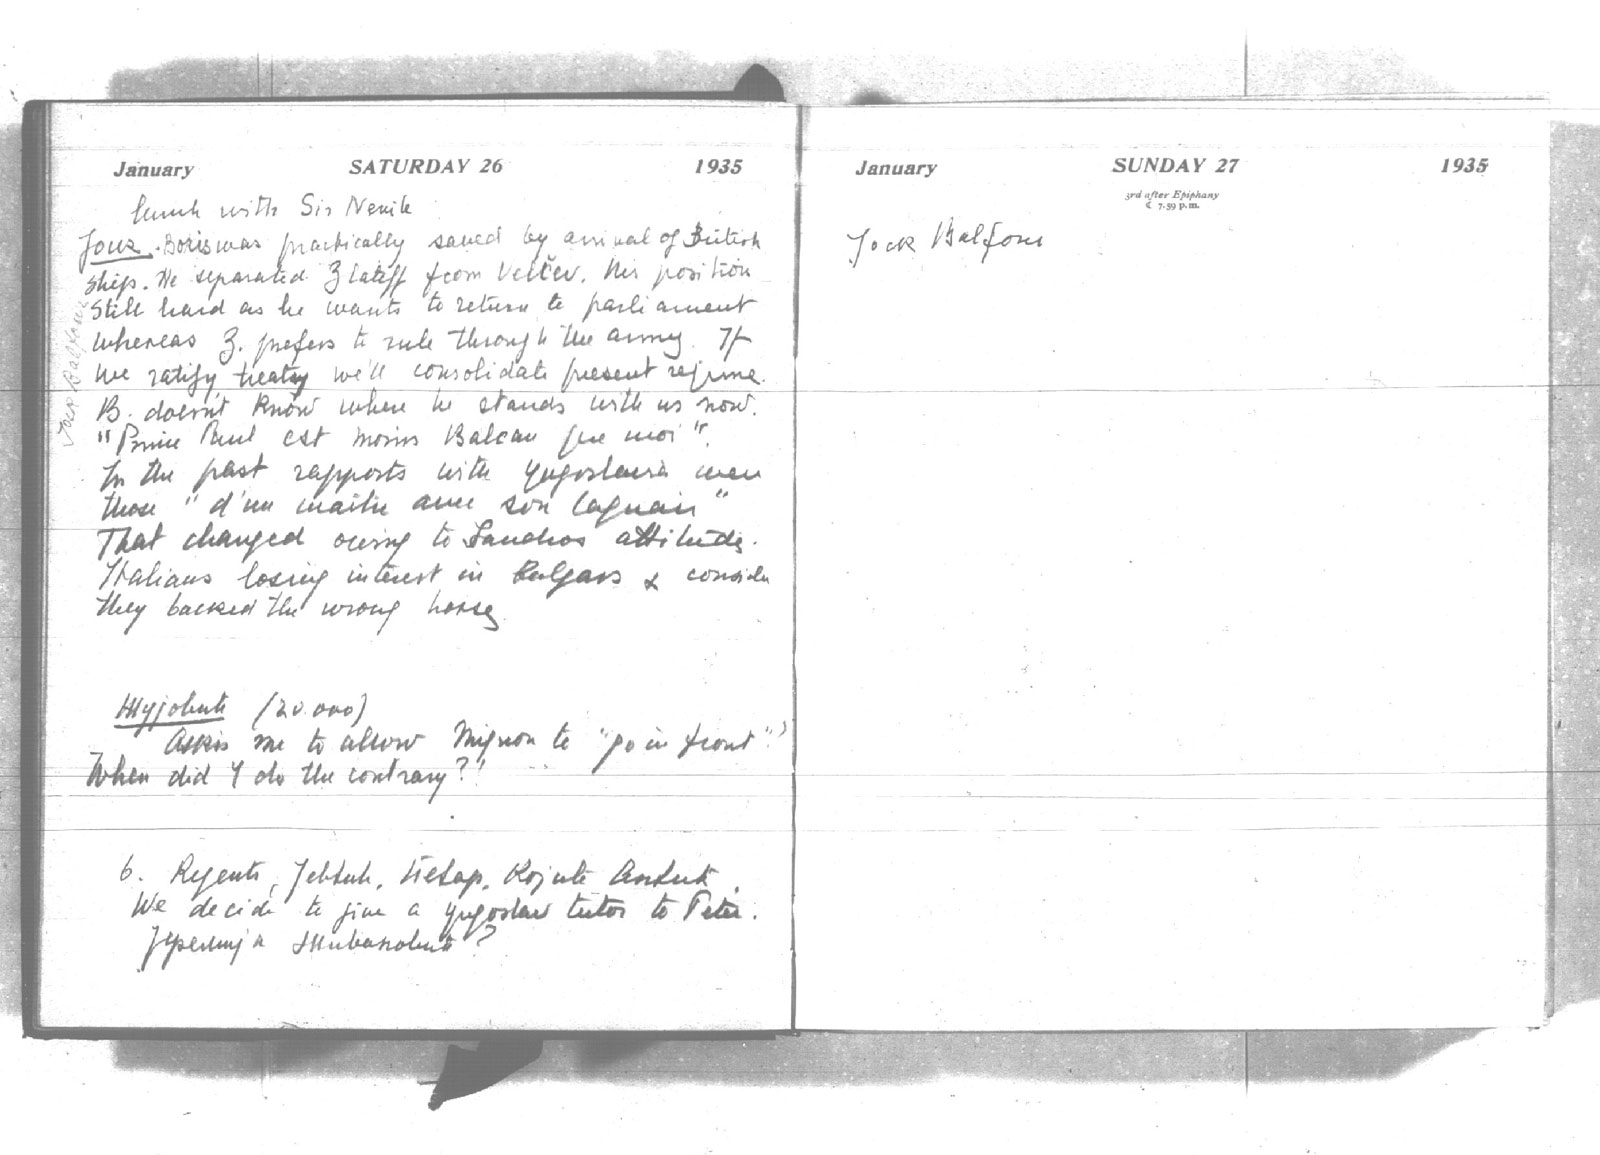 January SATURDAY 26 1935
lunch with Sir Nevile
Jock. Boris was practically saved by arrival of British
ships. He separated Zlateff from Velčev. His position
still hard as he wants to return to parliament
whereas Z. prefers to rule through the army. If
we ratify treaty we'll consolidate present regime.
B. doesn't know where he stands with us now.
"Prince Paul est moins Balcan que moi".
In the past rapports with Yugoslavia were
those "d'un maître avec son laquais"
That changed owing to Sandros attitude.
Italians losing interest in Bulgars & consider
they backed the wrong horse
Jack Balfour
(20.000)
Asks me to allow Mignon to "go in front"?
When did I do the contrary?!
6. Regents, Јевтић, Којић Антић.
We decide to give a yugoslav tutor to Peter.
Јеремија Живановић?
January SUNDAY 27 1935
3rd after Epiphany
☾ 7.59 p.m.
Jock Balfour